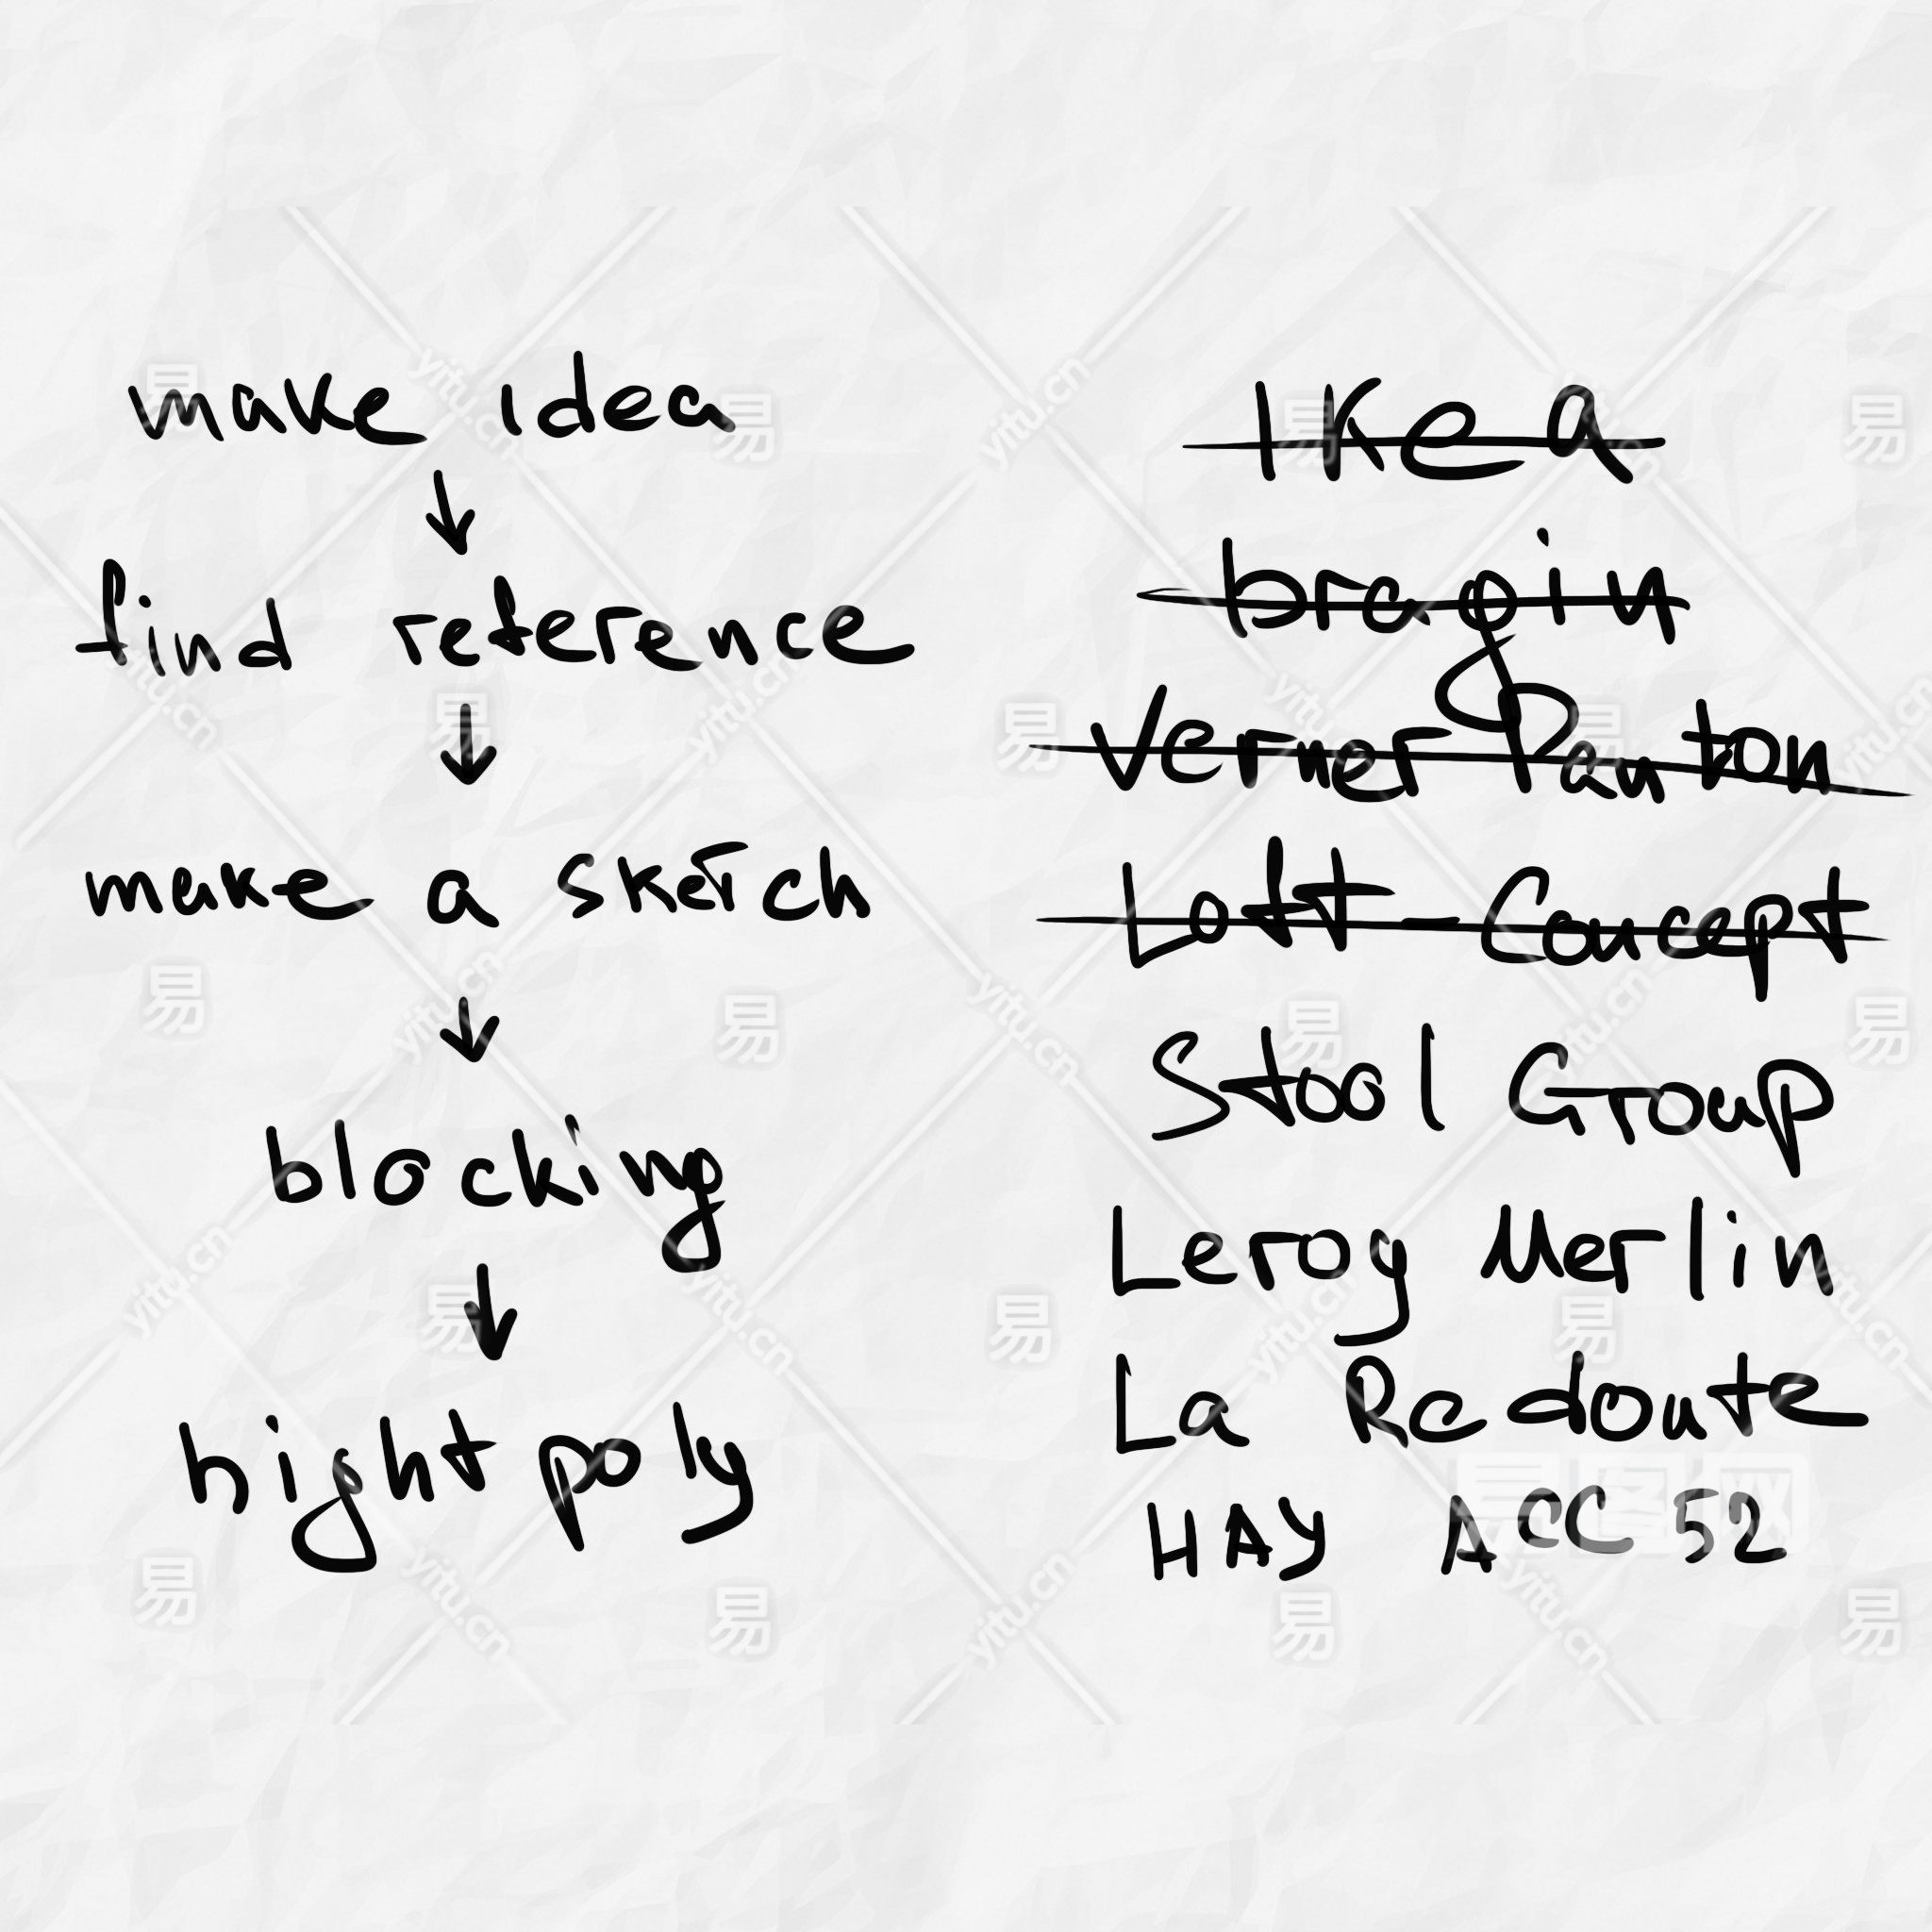 make idea
↓
find reference
↓
make a sketch
↓
blocking
↓
hight poly
Ikea
bragin
Verner Panton
Loft-Concept
Stool Group
Leroy Merlin
La Redoute
HAY ACC 52
易图网
易
yitu.cn